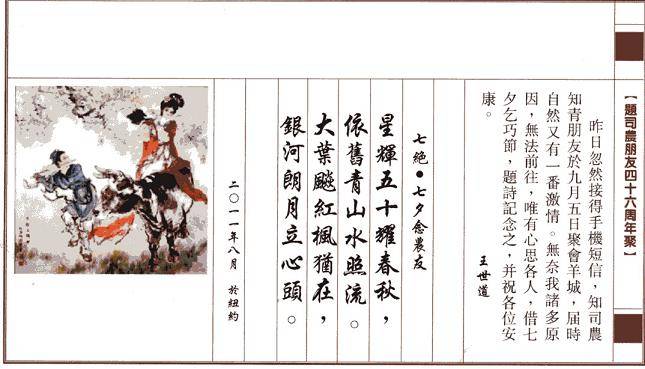 【題司農朋友四十六周年聚】
昨日忽然接得手機短信，知司農
知青朋友於九月五日聚會羊城，屆時
自然又有一番激情。無奈我諸多原
因，無法前往，唯有心思各人，借七
夕乞巧節，題詩記念之，并祝各位安
康。
王世道
七絕●七夕念農友
星輝五十耀春秋，
依舊青山水照流。
大葉飈紅楓猶在，
銀河朗月立心頭。
二〇一一年八月　於紐約